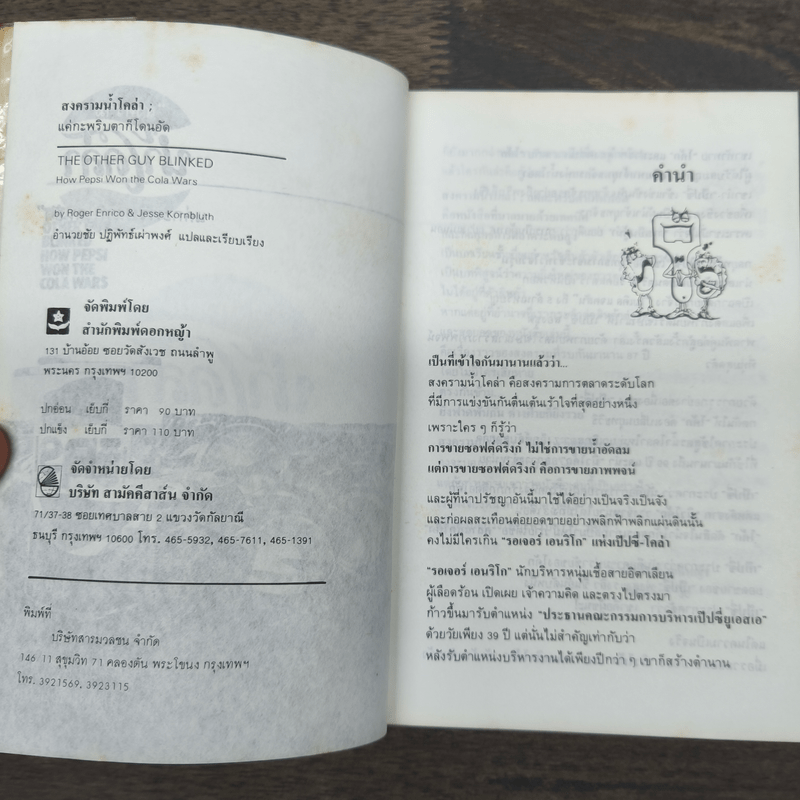 สงครามน้ำโคล่า ;
แค่กะพริบตาก็โดนอัด
THE OTHER GUY BLINKED
How Pepsi Won the Cola Wars
by Roger Enrico & Jesse Kornbluth
อำนวยชัย ปฏิพัทธ์เผ่าพงศ์ แปลและเรียบเรียง
HOW PEPSI
WON THE
COLA WARS
จัดพิมพ์โดย
สำนักพิมพ์ดอกหญ้า
131 บ้านอ้อย ซอยวัดสังเวช ถนนลำพู
พระนคร กรุงเทพฯ 10200
ปกอ่อน เย็บกี่ ราคา 90 บาท
ปกแข็ง เย็บกี่ ราคา 110 บาท
จัดจำหน่ายโดย
บริษัท สามัคคีสาส์น จำกัด
71/37-38 ซอยเทศบาลสาย 2 แขวงวัดกัลยาณี
ธนบุรี กรุงเทพฯ 10600 โทร. 465-5932, 465-7611, 465-1391
พิมพ์ที่
บริษัทสารมวลชน จำกัด
146 11 สุขุมวิท 71 คลองตัน พระโขนง กรุงเทพฯ
โทร. 3921569, 3923115
คำนำ
เป็นที่เข้าใจกันมานานแล้วว่า...
สงครามน้ำโคล่า คือสงครามการตลาดระดับโลก
ที่มีการแข่งขันกันตื่นเต้นเร้าใจที่สุดอย่างหนึ่ง
เพราะใคร ๆ ก็รู้ว่า
การขายซอฟต์ดริงก์ ไม่ใช่การขายน้ำอัดลม
แต่การขายซอฟต์ดริงก์ คือการขายภาพพจน์
และผู้ที่นำปรัชญาอันนี้มาใช้ได้อย่างเป็นจริงเป็นจัง
และก่อผลสะเทือนต่อยอดขายอย่างพลิกฟ้าพลิกแผ่นดินนั้น
คงไม่มีใครเกิน "รอเจอร์ เอนริโก" แห่งเป๊ปซี่-โคล่า
"รอเจอร์ เอนริโก" นักบริหารหนุ่มเชื้อสายอิตาเลียน
ผู้เลือดร้อน เปิดเผย เจ้าความคิด และตรงไปตรงมา
ก้าวขึ้นมารับตำแหน่ง "ประธานคณะกรรมการบริหารเป๊ปซี่ยูเอสเอ"
ด้วยวัยเพียง 39 ปี แต่นั่นไม่สำคัญเท่ากับว่า
หลังรับตำแหน่งบริหารงานได้เพียงปีกว่า ๆ เขาก็สร้างตำนาน